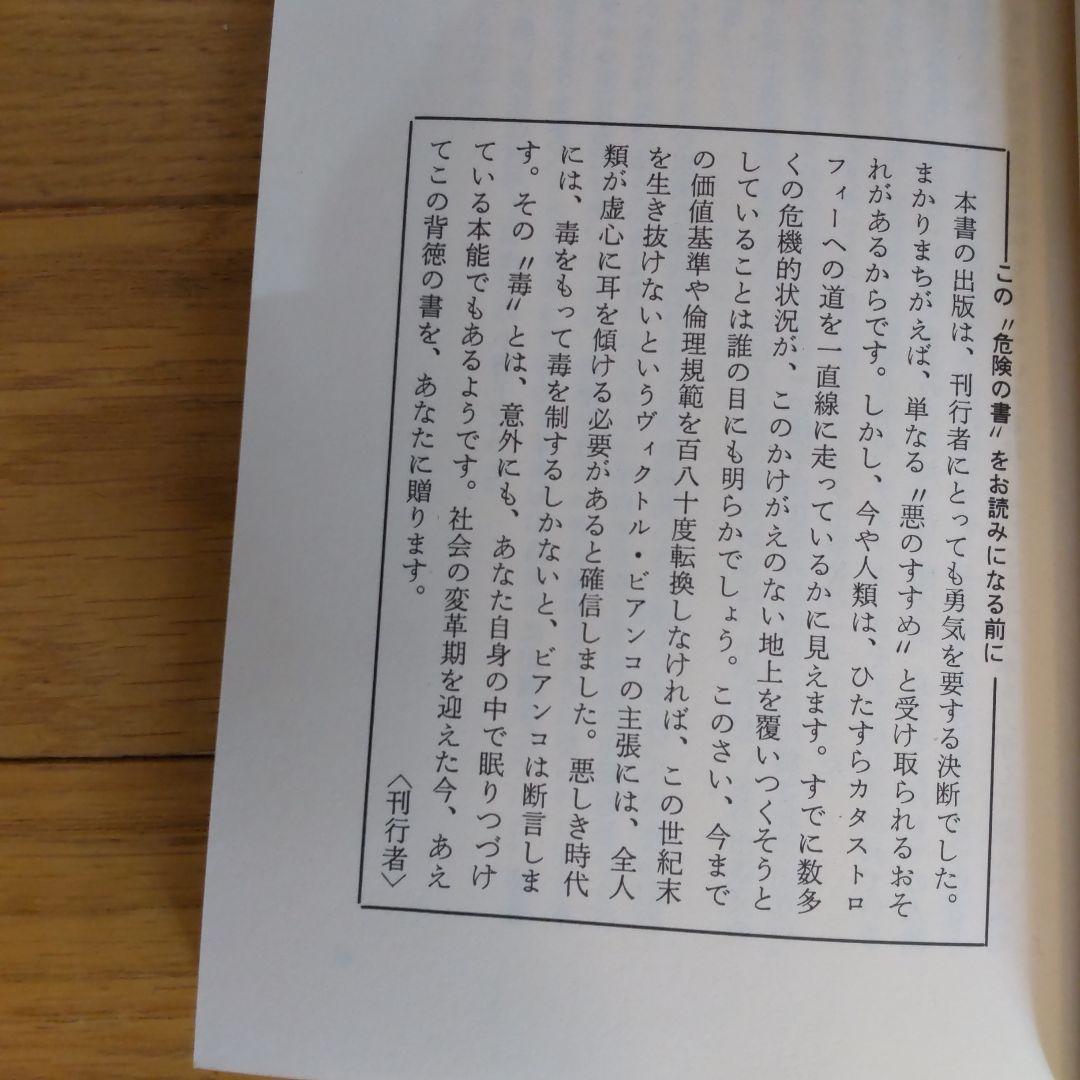 この〝危険の書〟をお読みになる前に
本書の出版は、刊行者にとっても勇気を要する決断でした。
まかりまちがえば、単なる〝悪のすすめ〟と受け取られるおそ
れがあるからです。しかし、今や人類は、ひたすらカタストロ
フィーへの道を一直線に走っているかに見えます。すでに数多
くの危機的状況が、このかけがえのない地上を覆いつくそうと
していることは誰の目にも明らかでしょう。このさい、今まで
の価値基準や倫理規範を百八十度転換しなければ、この世紀末
を生き抜けないというヴィクトル・ビアンコの主張には、全人
類が虚心に耳を傾ける必要があると確信しました。悪しき時代
には、毒をもって毒を制するしかないと、ビアンコは断言しま
す。その〝毒〟とは、意外にも、あなた自身の中で眠りつづけ
ている本能でもあるようです。社会の変革期を迎えた今、あえ
てこの背徳の書を、あなたに贈ります。
〈刊行者〉